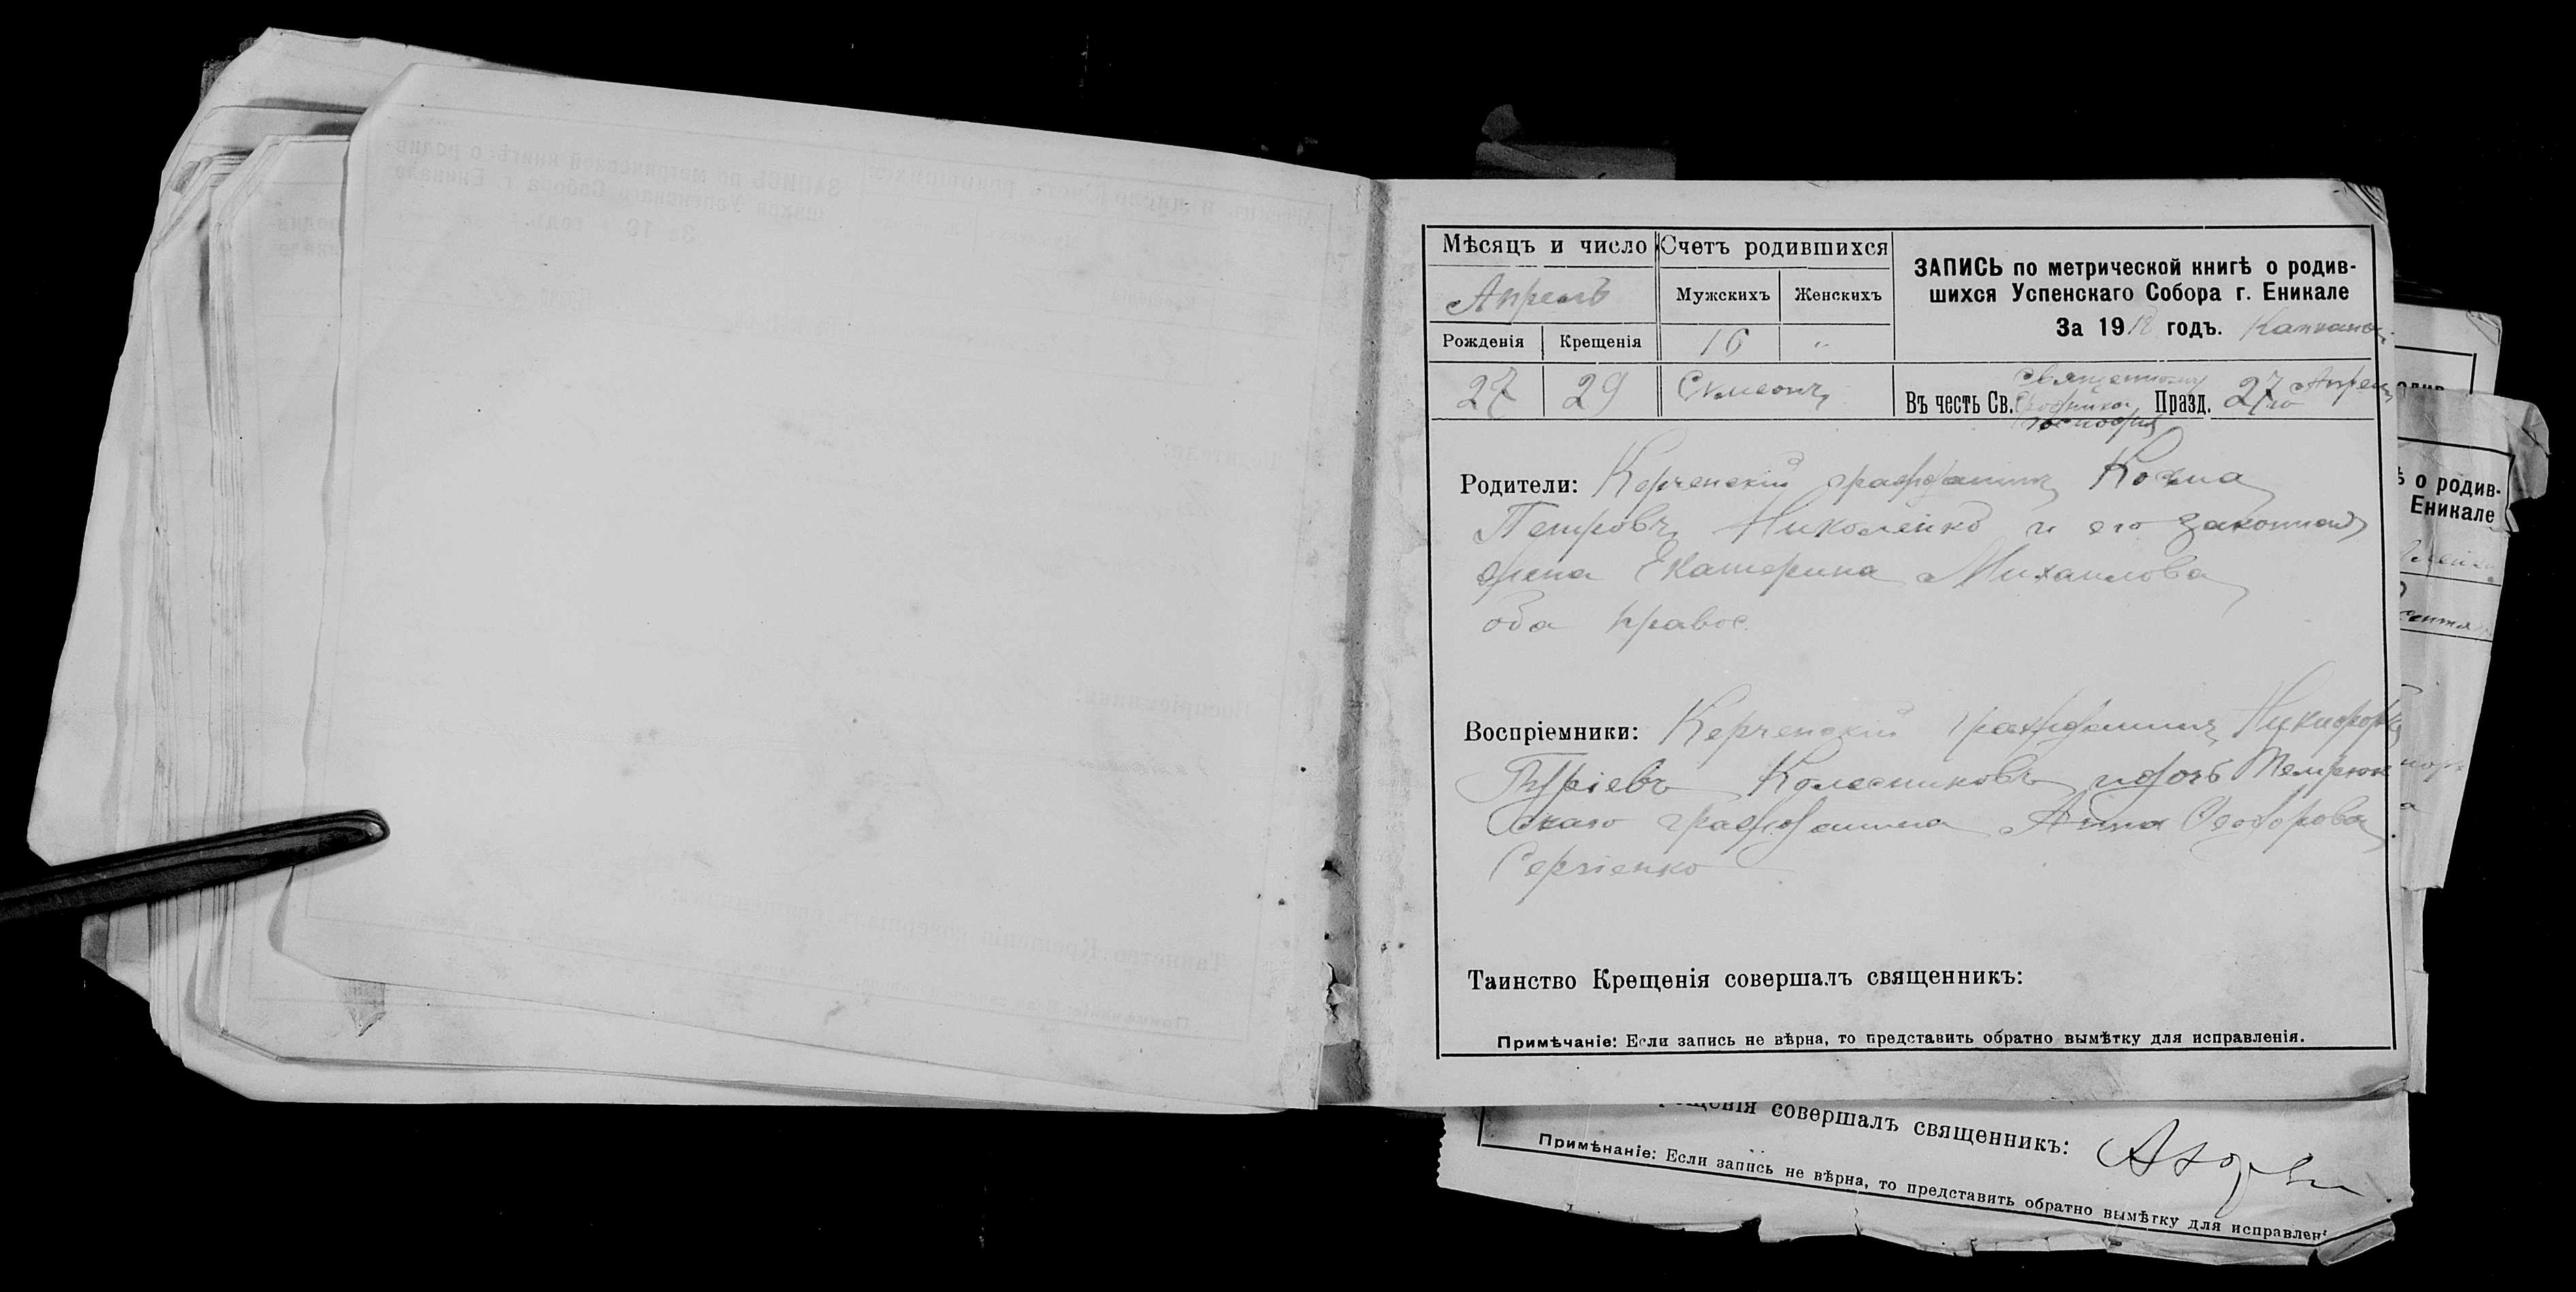 Мѣсяцъ и число
Счетъ родившихся
Апрель
Мужскихъ
Женскихъ
Рожденія
Крещенія
16
"
27
29
Симеонъ
ЗАПИСЬ по метрической книгѣ о родив-
шихся Успенскаго Собора г. Еникале
За 1918 годъ.
Въ честь Св. Священномуч
Сродника Празд. 27го Апрел
Господня
Родители: Керченскій гражданинъ Козма
Петровъ Николенко и его законная
жена Екатерина Михаилова
оба правос.
Воспріемники: Керченскій гражданинъ Никифоръ
Гуріевъ Колесниковъ и дочь Темрюк
скаго гражданина Анна Ѳеодорова
Сергіенко
Таинство Крещенія совершалъ священникъ:
Примѣчаніе: Если запись не вѣрна, то представить обратно вымѣтку для исправленія.
ѣ о родив-
Еникале
совершалъ священникъ:
Примѣнаніе: Если запись не вѣрна, то представить обратно вымѣтку для исправлен